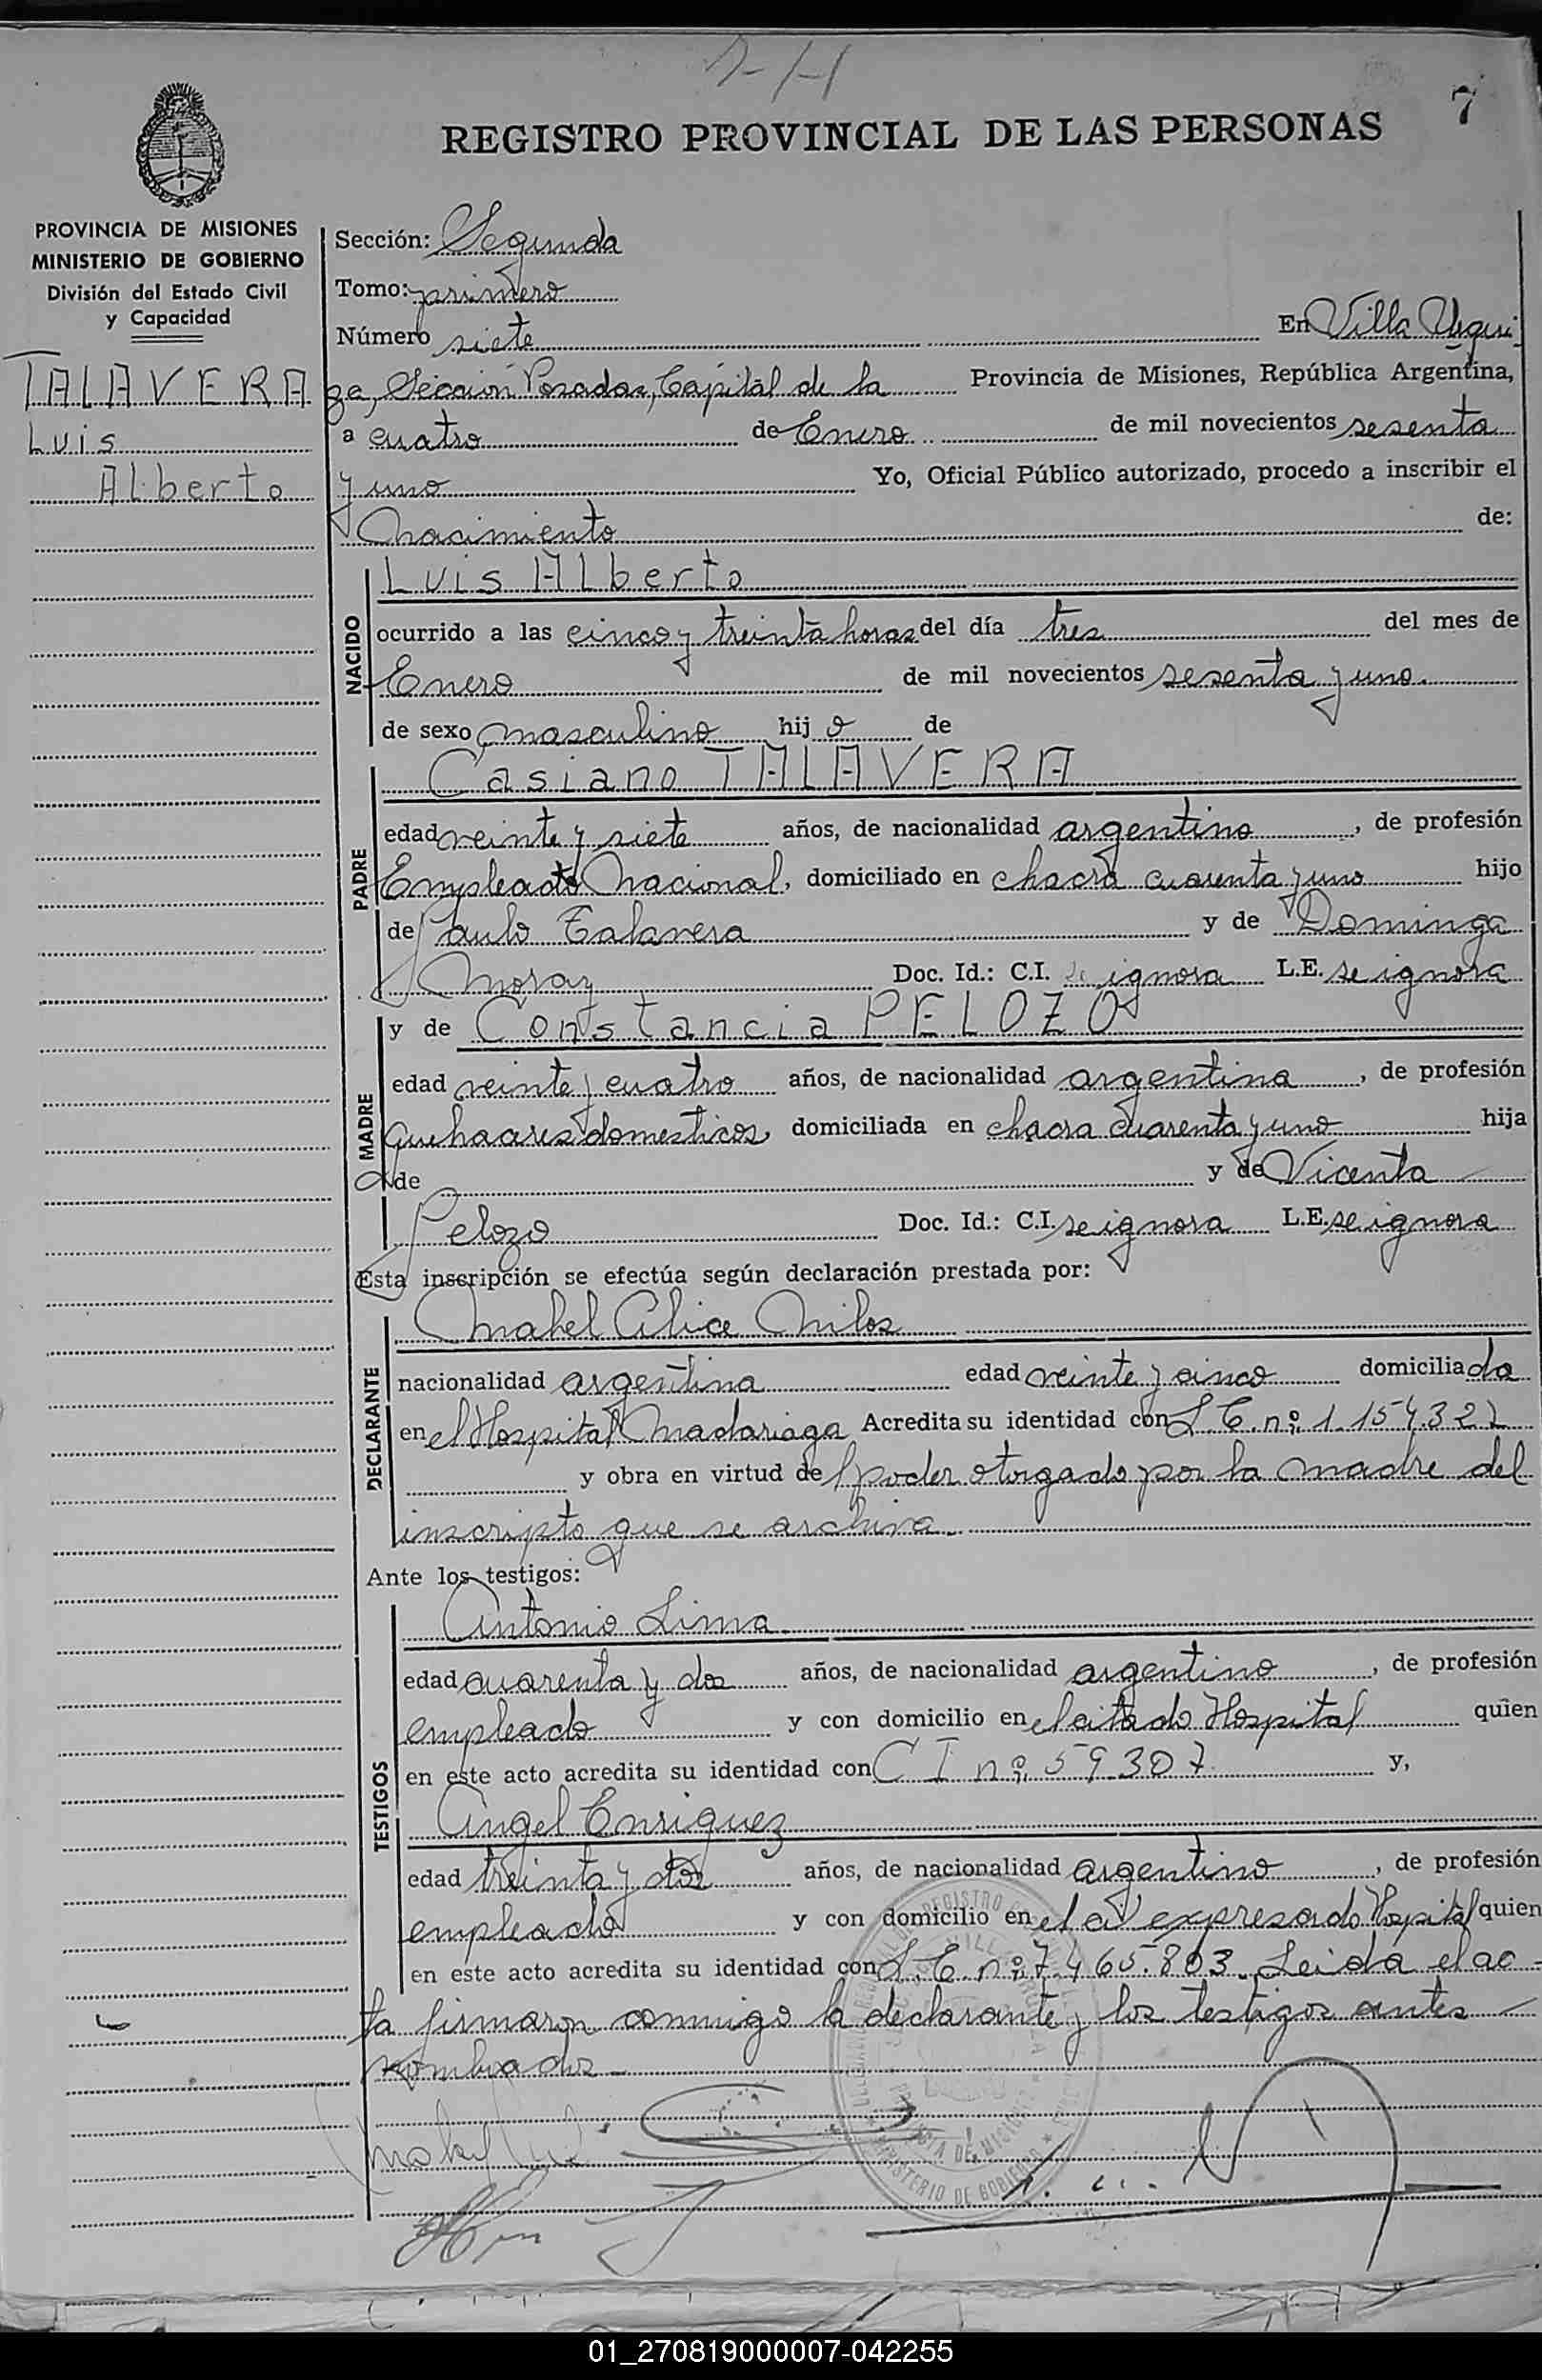 7
REGISTRO PROVINCIAL DE LAS PERSONAS
PROVINCIA DE MISIONES
MINISTERIO DE GOBIERNO
División del Estado Civil
y Capacidad
TALAVERA
Luis
Alberto
Sección: Segunda
Tomo: primero
Número siete En Villa Urqui
za, Sección Posadas, Capital de la Provincia de Misiones, República Argentina,
a cuatro de Enero de mil novecientos sesenta
y uno Yo, Oficial Público autorizado, procedo a inscribir el
Nacimiento de:
NACIDO
Luis Alberto
ocurrido a las cinco y treinta horas del día tres del mes de
Enero de mil novecientos sesenta y uno.
de sexo masculino hijo de
PADRE
Casiano TALAVERA
edad veinte y siete años, de nacionalidad argentino, de profesión
Empleado Nacional, domiciliado en chacra cuarenta y uno hijo
de Paulo Talavera y de Dominga
Moraz Doc. Id.: C.I. Se ignora L.E. se ignora
MADRE
y de Constancia PELOZO
edad veinte y cuatro años, de nacionalidad argentina, de profesión
quehaceres domesticos, domiciliada en chacra cuarenta y uno hija
de y de Vicenta
Pelozo Doc. Id.: C.I. se ignora L.E. se ignora
Esta inscripción se efectúa según declaración prestada por:
DECLARANTE
Mabel Alice Milos
nacionalidad argentina edad veinte y cinco domiciliada
en el Hospital Madariaga Acredita su identidad con L C. nº 1.154.322
y obra en virtud del poder otorgado por la madre del
inscripto que se archiva.
Ante los testigos:
TESTIGOS
Antonio Lima
edad cuarenta y dos años, de nacionalidad argentino, de profesión
empleado y con domicilio en el citado Hospital quien
en este acto acredita su identidad con C I nº 59307 y,
Angel Enriquez
edad treinta y dos años, de nacionalidad argentino, de profesión
empleado y con domicilio en el expresado Hospital quien
en este acto acredita su identidad con L. E. nº 7.465.803. Leida el ac-
ta firmaron conmigo la declarante y los testigos antes
nombrados.
MINISTERIO DE GOBIERNO
01_270819000007-042255